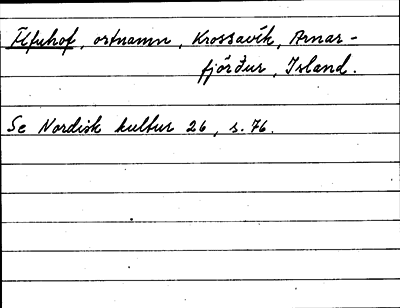 Álfuhof, ortnamn, Krossavík, Arnar-
fjörður, Island.
Se Nordisk kultur 26, s. 76.